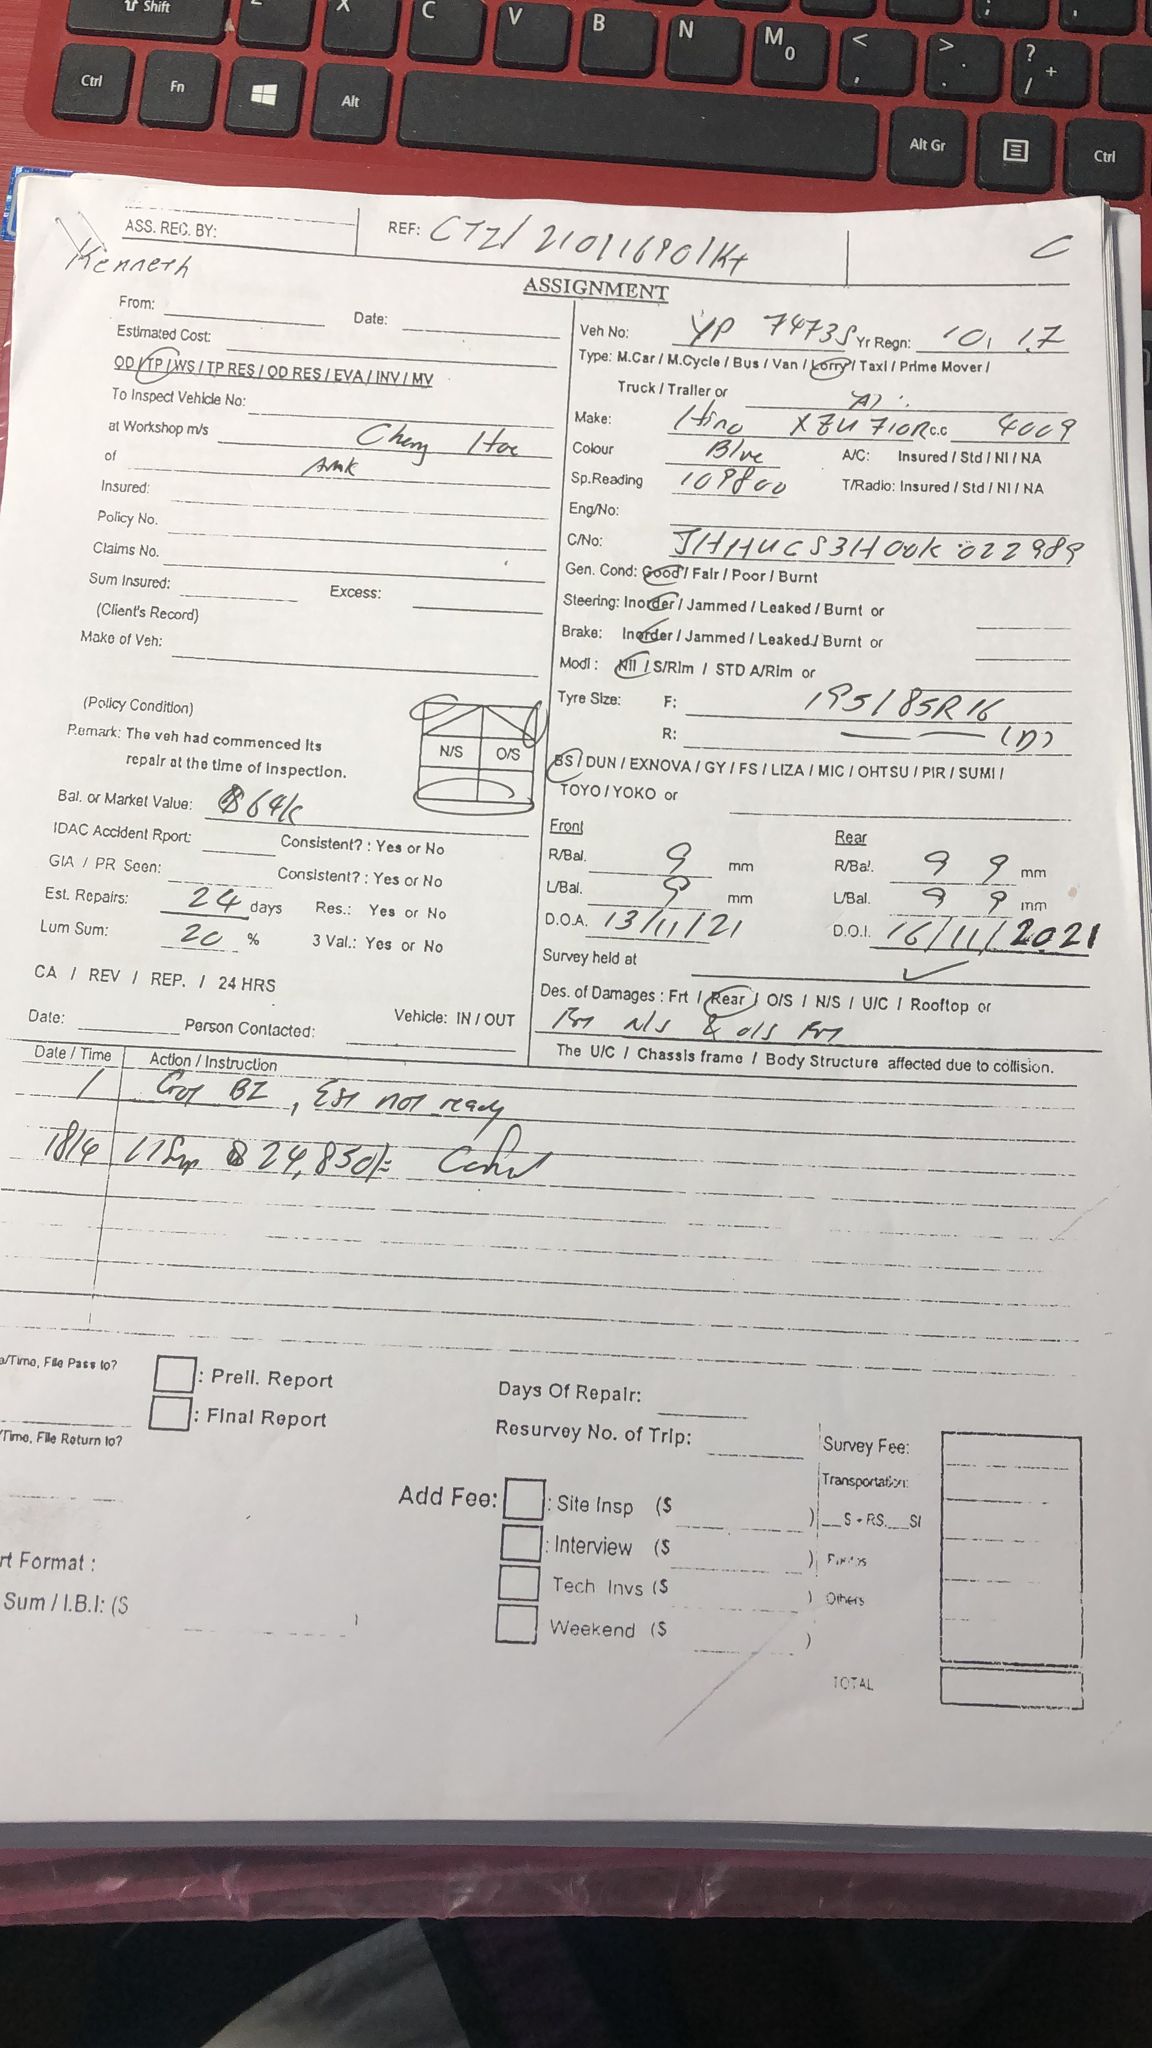 Shift Z X C V B N M 0 < , > . ? / +
Ctrl Fn Alt Alt Gr Ctrl
ASS. REC. BY:
REF: CTZ/ 21011690/Kt
C
Kenneth
ASSIGNMENT
From: Date:
Estimated Cost:
OD / TP / WS / TP RES / OD RES / EVA / INV / MV
To Inspect Vehicle No:
at Workshop m/s Cheng Hoe
of AMK
Insured:
Policy No.
Claims No.
Sum Insured: Excess:
(Client's Record)
Make of Veh:
(Policy Condition)
Remark: The veh had commenced its
repair at the time of inspection.
N/S O/S
Bal. or Market Value: $64k
IDAC Accident Rport: Consistent? : Yes or No
GIA / PR Seen: Consistent? : Yes or No
Est. Repairs: 24 days Res.: Yes or No
Lum Sum: 20 % 3 Val.: Yes or No
CA / REV / REP. / 24 HRS
Vehicle: IN / OUT
Date: Person Contacted:
Veh No: YP 7473S Yr Regn: 10, 17
Type: M.Car / M.Cycle / Bus / Van / Lorry / Taxi / Prime Mover /
Truck / Trailer or
Make: Hino XZU710R c.c 4009
Colour Blue A/C: Insured / Std / NI / NA
Sp.Reading 109800 T/Radio: Insured / Std / NI / NA
Eng/No:
C/No: JHHUCS3H00K022989
Gen. Cond: Good / Fair / Poor / Burnt
Steering: Inorder / Jammed / Leaked / Burnt or
Brake: Inorder / Jammed / Leaked / Burnt or
Modi: Nil / S/Rim / STD A/Rim or
Tyre Size: F: 195/85R16
R: (D)
BS / DUN / EXNOVA / GY / FS / LIZA / MIC / OHTSU / PIR / SUMI /
TOYO / YOKO or
Front Rear
R/Bal. 9 mm R/Bal. 9 9 mm
L/Bal. 9 mm L/Bal. 9 9 mm
D.O.A. 13/11/21 D.O.I. 16/11/2021
Survey held at
Des. of Damages : Frt / Rear / O/S / N/S / U/C / Rooftop or
N/S & O/S
The U/C / Chassis frame / Body Structure affected due to collision.
Date / Time Action / Instruction
BZ, Est not ready
18/4 $24,830/=
/Time, File Pass to?
: Prell. Report
: Final Report
/Time, File Return to?
Days Of Repair:
Resurvey No. of Trip:
Survey Fee:
Transportation:
Add Fee: : Site Insp ($ ) S - RS. SI
: Interview ($ )
Tech Invs ($ ) Others
Weekend ($ )
TOTAL
rt Format :
Sum / I.B.I: ($ )